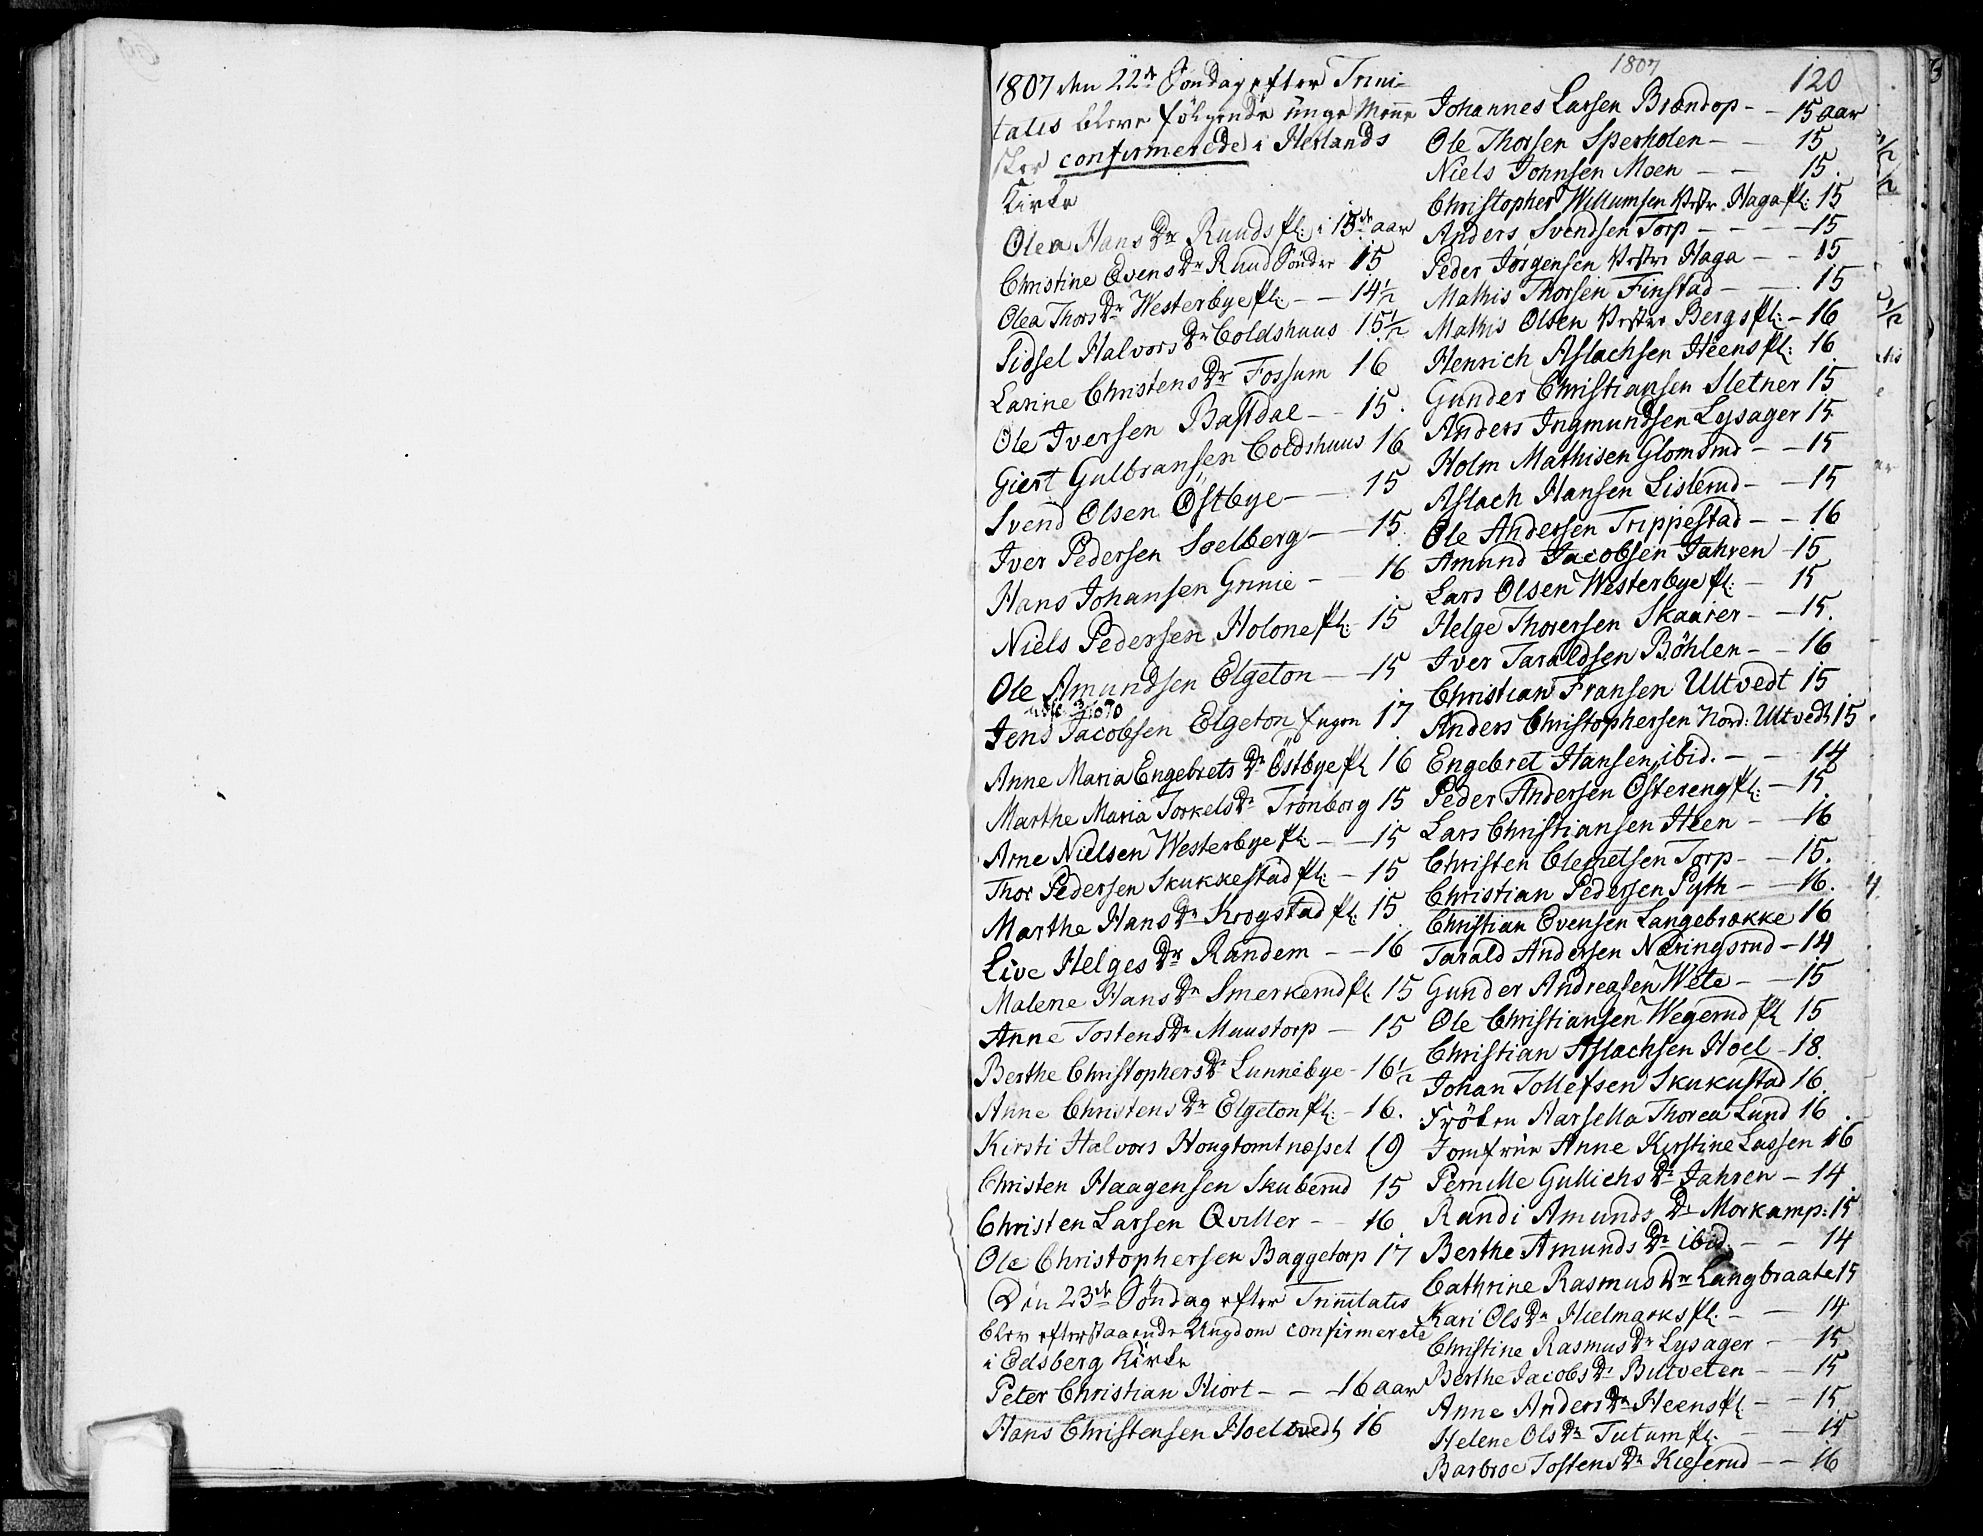 1807
120
1807 den 22de Søndag efter Trini-
tatis bleve følgende unge Menne
sker confirmerede i Herlands
Kirke
Olea Hans Dr Ruuds pl: i 15de aar
Christine Evens Dr Ruud Søndre 15
Olea Thors Dr Westerbye pl: - - 14 1/2
Sidsel Halvors Dr Coldshuus 15 1/2
Larine Christens Dr Fossum 16
Ole Iversen Bastdal - - 15.
Giert Gulbransen Coldshuus 16
Svend Olsen Østbye - - 15
Iver Pedersen Soelberg - - 15
Hans Johansen Grinie - - 16
Niels Pedersen Holone pl: 15
Ole Amundsen Elgeton - - 15
Jens Jacobsen Elgeton 17
Anne Maria Engebrets Dr Østbye pl 16
Marthe Maria Torkels Dr Trønborg 15
Arne Nielsen Westerbye pl: - - 15
Thor Pedersen Skukkestad pl: - 15
Marthe Hans Dr Krogstad pl: 15
Live Helges Dr Randem - - 16
Malene Hans Dr Smerkerud pl. 15
Anne Tostens Dr Muustorp - 15
Berthe Christophers Dr Lunnebye - 16 1/2
Anne Christens Dr Elgeton pl: - 16.
Kirsti Halvors Hougtomtnæsset 19
Christen Haagensen Skuberud 15
Christen Larsen Qviller - - 16
Ole Christophersen Baggetorp 17
Den 23de Søndag efter Trinitatis
blev efterstaaende Ungdom confirmerede
i Edsberg Kirke
Peter Christian Hiort - - - 16 aar
Hans Christensen Hoeltvedt 16
Johannes Larsen Brændop - - 15 aar
Ole Thorsen Sperholen - - 15
Niels Johnsen Moen - - 15.
Christopher Willumsen Vestr. Haga pl: 15
Anders Svendsen Torp - - - - 15
Peder Jørgensen Vestre Haga - - 15
Mathis Thorsen Finstad - - 15
Mathis Olsen Vestre Bergs pl: - 16
Henrich Aslachsen Heens pl: 16
Gunder Christiansen Sletner 15
Anders Ingmundsen Lysager 15
Holm Mathisen Glomsrud - - 15
Aslach Hansen Lislerud - - 15
Ole Andersen Trippestad - - 16
Amund Jacobsen Jahren - 15
Lars Olsen Westerbye pl: - 15
Helge Thorersen Skaarer - - 15.
Iver Taraldsen Bøhlen - - 16
Christian Fransen Ultvedt 15
Anders Christophersen Nord: Ultvedt 15
Engebret Hansen ibid. - - - 14
Peder Andersen Østereng pl: - 15
Lars Christiansen Heen - - 16
Christen Clemetsen Torp - - 15.
Christian Pedersen Pyth - - 16.
Christian Evensen Langebrække 16
Tarald Andersen Næringsrud - 14
Gunder Andreasen Wete - - 15
Ole Christiansen Wegerud pl 15
Christian Aslachsen Hoel - 18.
Johan Tollefsen Skukustad 16.
Frøken Aarsella Thorea Lund 16
Jomfrue Anne Kirstine Lassen 16
Pernille Gullichs Dr Jahren - 14
Randi Amunds Dr Morkamp: 15
Berthe Amunds Dr ibid. - - 14
Cathrine Rasmus Dr Langbraate 15
Kari Ols Dr Hielmarks pl: - - 14
Christine Rasmus Dr Lysager - 15
Berthe Jacobs Dr Butveten - - 15
Anne Anders Dr Heens pl - - 15
Helene Ols Dr Tutum pl. - - 15
Barbroe Tostens Dr Kieserud - - 16